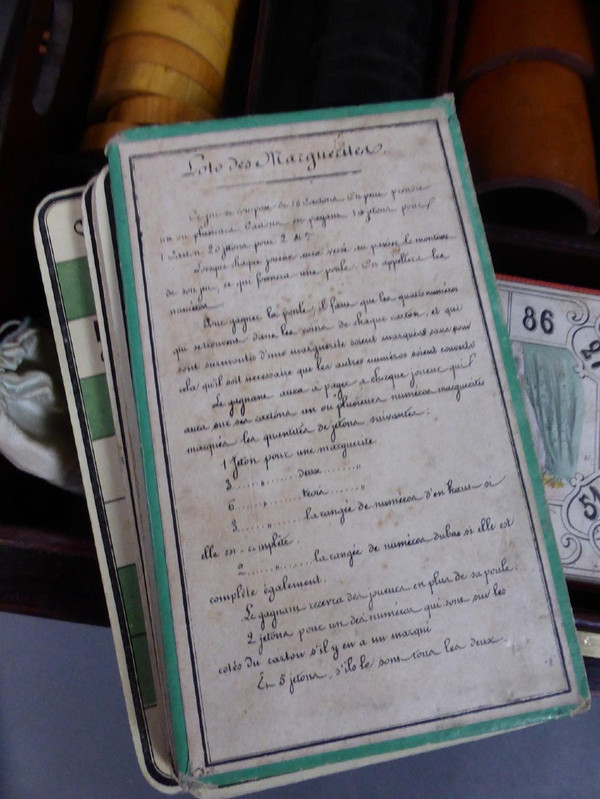 Loto des Marguerites.
Ce jeu se compose de 18 cartons. On peut prendre
un ou plusieurs cartons en payant 10 jetons pour
1 carton 20 jetons pour 2 &c
Lorsque chaque joueur aura versé au panier le montant
de son jeu, ce qui formera une poule. On appellera les
numéros
Pour gagner la poule, il faut que les quatre numéros
qui se trouvent dans les coins de chaque carton, et qui
sont surmontés d'une marguerite soient marqués sans pour
cela, qu'il soit nécessaire que les autres numéros soient couverts
Le gagnant aura à payer à chaque joueur qui
aura sur ses cartons un ou plusieurs numéros marguerités
marqués les quantités de jetons suivantes:
1 Jeton pour une marguerite
3 " deux "
6 " trois "
3 la rangée de numéros d'en haut si
elle est complète.
2 la rangée de numéros du bas si elle est
complète également.
Le gagnant recevra des joueurs en plus de sa poule:
2 jetons pour un des numéros qui sont sur les
cotés du carton s'il y en a un marqué
Et 5 jetons, s'ils le sont tous les deux.
86
51